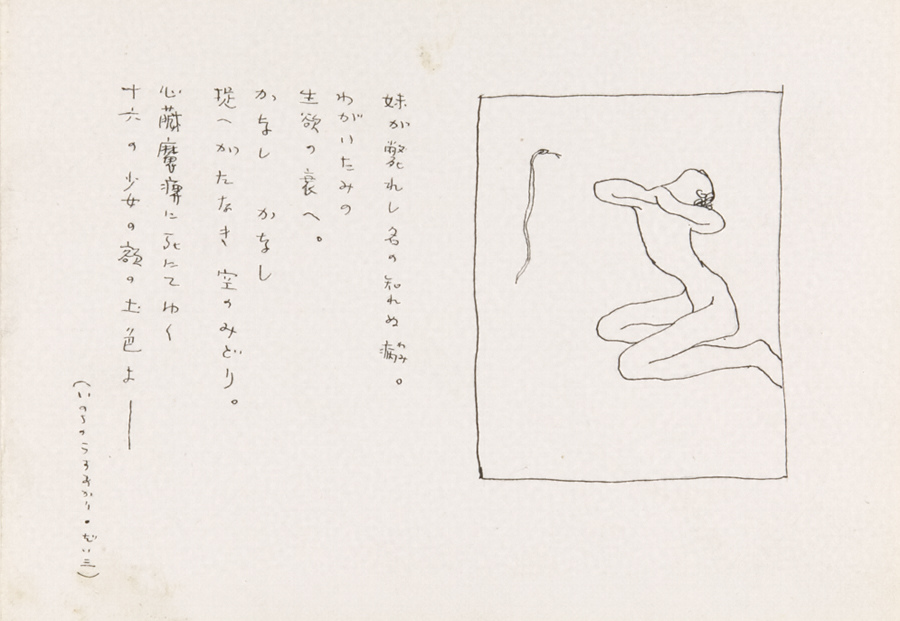 妹が斃れし名の知れぬ病。
わがいたみの
生欲の衰へ。
かなし かなし
捉へがたなき 空のみどり。
心臓麻痺に死にてゆく
十六の少女の額の土色よ——
(いのちのうすあかり。だい三)